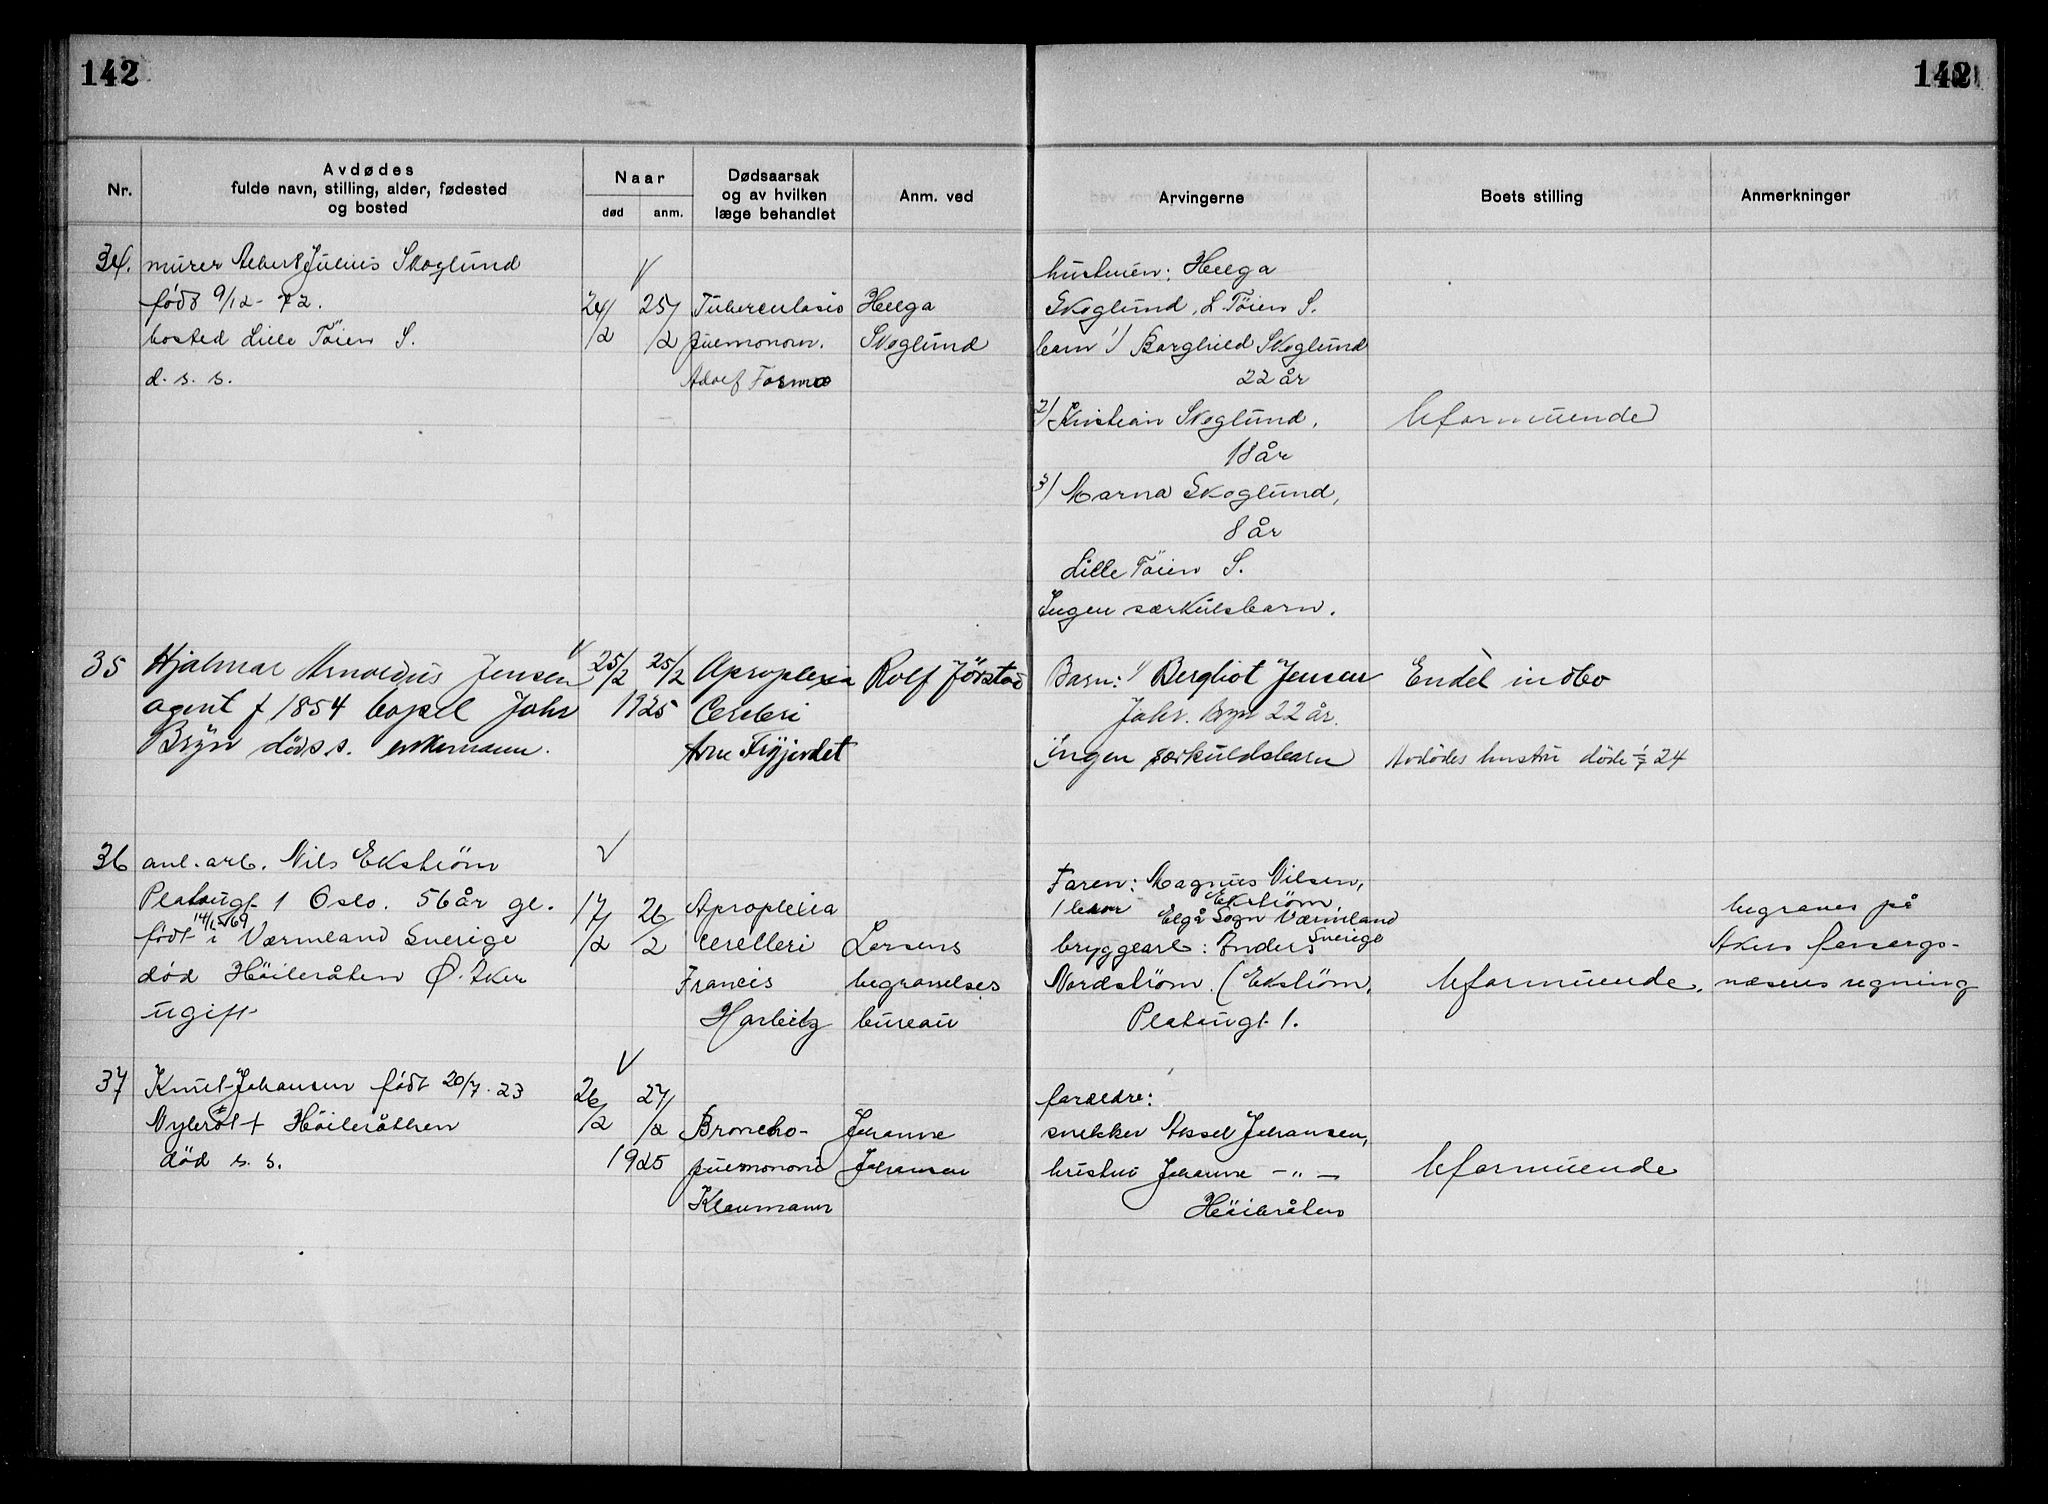 142
142
Nr.
Avdødes
fulde navn, stilling, alder, fødested
og bosted
Naar
død
anm.
Dødsaarsak
og av hvilken
læge behandlet
Anm. ved
Arvingerne
Boets stilling
Anmerkninger
34.
murer Albert Julius Skoglund
født 9/12 - 72.
bosted Lille Töien S.
d. s. s.
24/2
25/2
Tuberculosis
pulmonom.
Adolf Tosmo
Helga
Skoglund
hustruen: Helga
Skoglund, L. Töien S.
barn 1/ Borghild Skoglund
22 år
2/ Kristian Skoglund,
18 år
3/ Marna Skoglund,
8 år
Lille Töien S.
Ingen særkulsbarn.
Uformuende
35
Hjalmar Arnoldus Jensen
agent f 1854 bopel Johr
Bryn død s.s. enkemann.
25/2
25/2
1925
Apoplexia
Cerebri
Arne
Rolf Jörstad
Barn: 1/ Bergliot Jensen
Johr. Bryn 22 år.
ingen særkuldsbarn
Endel indbo
Avdödes hustru döde 1/7 24
36
anl. arb. Nils Ekstrøm
Platougt 1 Oslo. 56 år gl.
14/12 69
født i Værmland Sverige
död Höibråten Ø. Aker
ugift
17/2
26/2
Apoplexia
cerebri
Francis
Harbitz
Larsens
begravelses
bureau
Faren: Magnus Nilsen,
Ekstrøm
1 bror Elgå Sogn Værmland
Sverige
bryggearb: Anders
Nordstrøm (Ekstrøm,
Platougt 1.
Uformuende.
begraves på
Akers forsorgs-
næsens regning
37
Knut Johansen født 20/7. 23
Nybrot + Höibråthen
död s. s.
26/2
27/2
1925
Broncho-
pnemononi
Klaumann
Johanne
Johansen
foreldre:
snekker Aksel Johansen,
hustru Johanne — " —
Höibråten
Uformuende